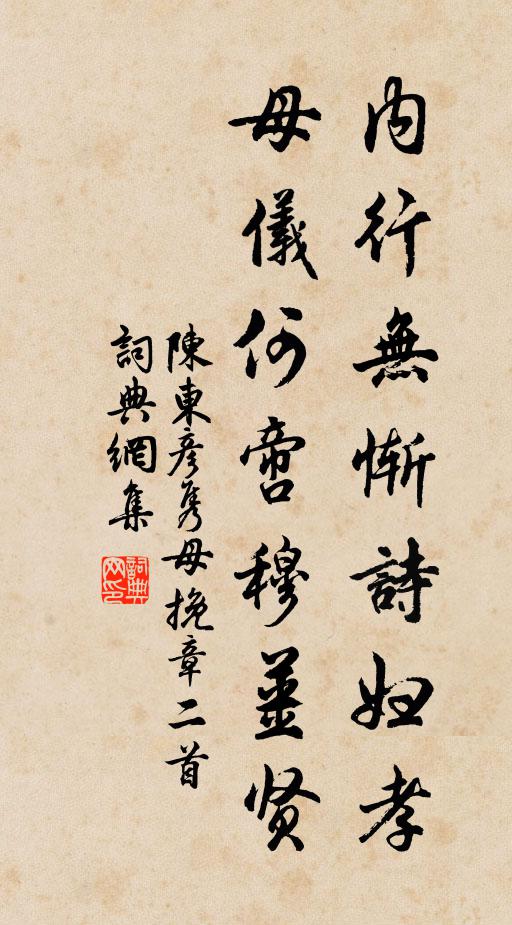 内行無慚詩婦孝
母儀何啻穆姜贤
陳東彦隽母挽章二首
詞典網集
詞典网印